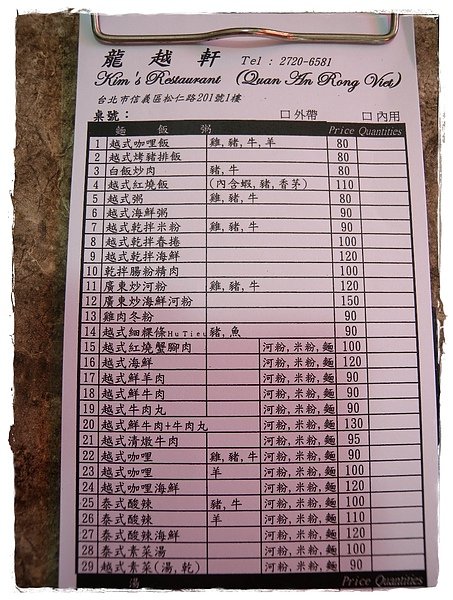 龍越軒 Tel : 2720-6581
Kim's Restaurant (Quan An Rong Viet)
台北市信義區松仁路201號1樓
桌號： □外帶 □內用
麵 飯 粥 Price Quantities
1 越式咖哩飯 雞,豬,牛,羊 80
2 越式烤豬排飯 80
3 白飯炒肉 豬,牛 80
4 越式紅燒飯 (內含蝦,豬,香茅) 110
5 越式粥 雞,豬,牛 80
6 越式海鮮粥 90
7 越式乾拌米粉 雞,豬,牛 90
8 越式乾拌春捲 100
9 越式乾拌海鮮 120
10 乾拌腸粉精肉 100
11 廣東炒河粉 雞,豬,牛 120
12 廣東炒海鮮河粉 150
13 雞肉冬粉 90
14 越式細粿條HuTieu 豬,魚 90
15 越式紅燒蟹腳肉 河粉,米粉,麵 100
16 越式海鮮 河粉,米粉,麵 120
17 越式鮮羊肉 河粉,米粉,麵 90
18 越式鮮牛肉 河粉,米粉,麵 90
19 越式牛肉丸 河粉,米粉,麵 90
20 越式鮮牛肉+牛肉丸 河粉,米粉,麵 130
21 越式清燉牛肉 河粉,米粉,麵 95
22 越式咖哩 雞,豬,牛 河粉,米粉,麵 90
23 越式咖哩 羊 河粉,米粉,麵 100
24 越式咖哩海鮮 河粉,米粉,麵 120
25 泰式酸辣 豬,牛 河粉,米粉,麵 100
26 泰式酸辣 羊 河粉,米粉,麵 110
27 泰式酸辣海鮮 河粉,米粉,麵 120
28 泰式素菜湯 河粉,米粉,麵 100
29 越式素菜(湯,乾) 河粉,米粉,麵 90
湯 Price Quantities